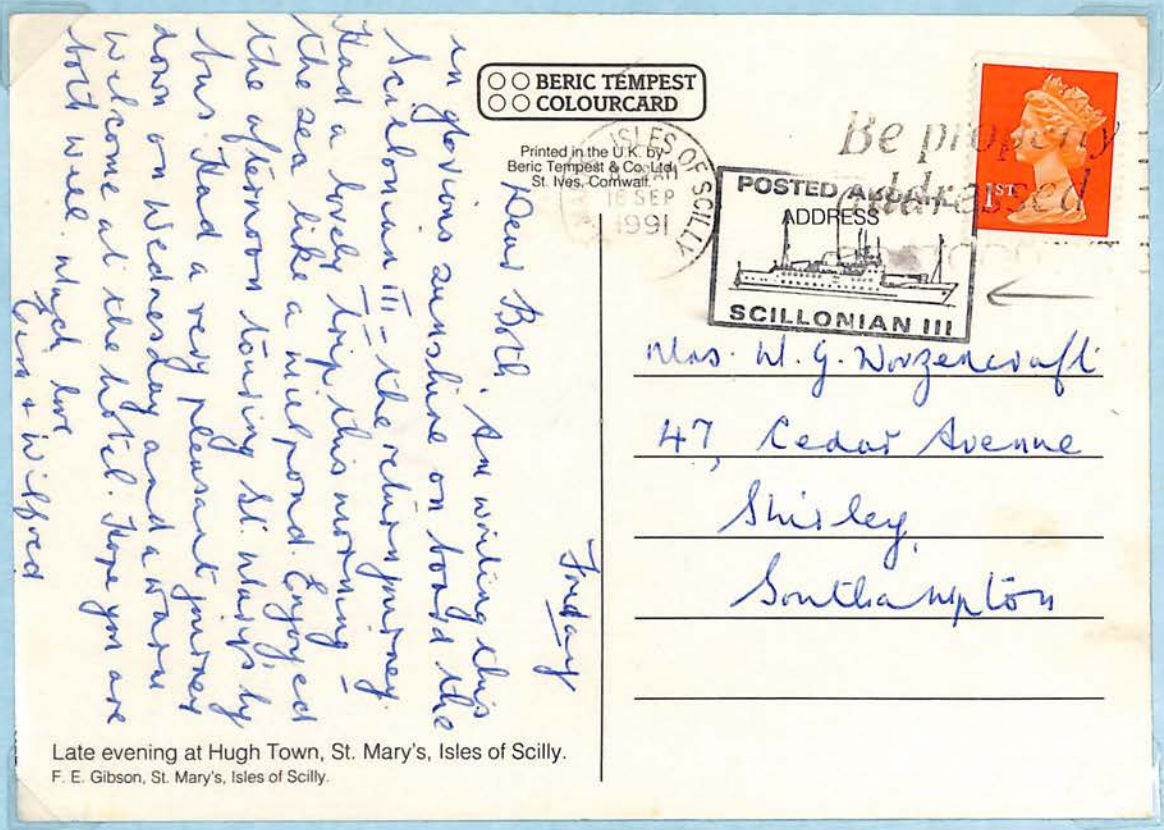 BERIC TEMPEST
COLOURCARD
Printed in the U.K. by
Beric Tempest & Co. Ltd.
St. Ives, Cornwall.
ISLES OF SCILLY
16 SEP
1991
Be properly
addressed
POSTED ABOARD
ADDRESS
SCILLONIAN III
1ST
Friday
Dear Both, Am writing this
in glorious sunshine on board the
Scillonian III - the return journey.
Had a lovely trip this morning -
the sea like a millpond. Enjoyed
the afternoon touring St. Mary's by
bus. Had a very pleasant journey
down on Wednesday and a warm
welcome at the hotel. Hope you are
both well. Much love
& Wilfred
Mrs. W. G. Wozencraft
47, Cedar Avenue
Shirley,
Southampton
Late evening at Hugh Town, St. Mary's, Isles of Scilly.
F. E. Gibson, St. Mary's, Isles of Scilly.